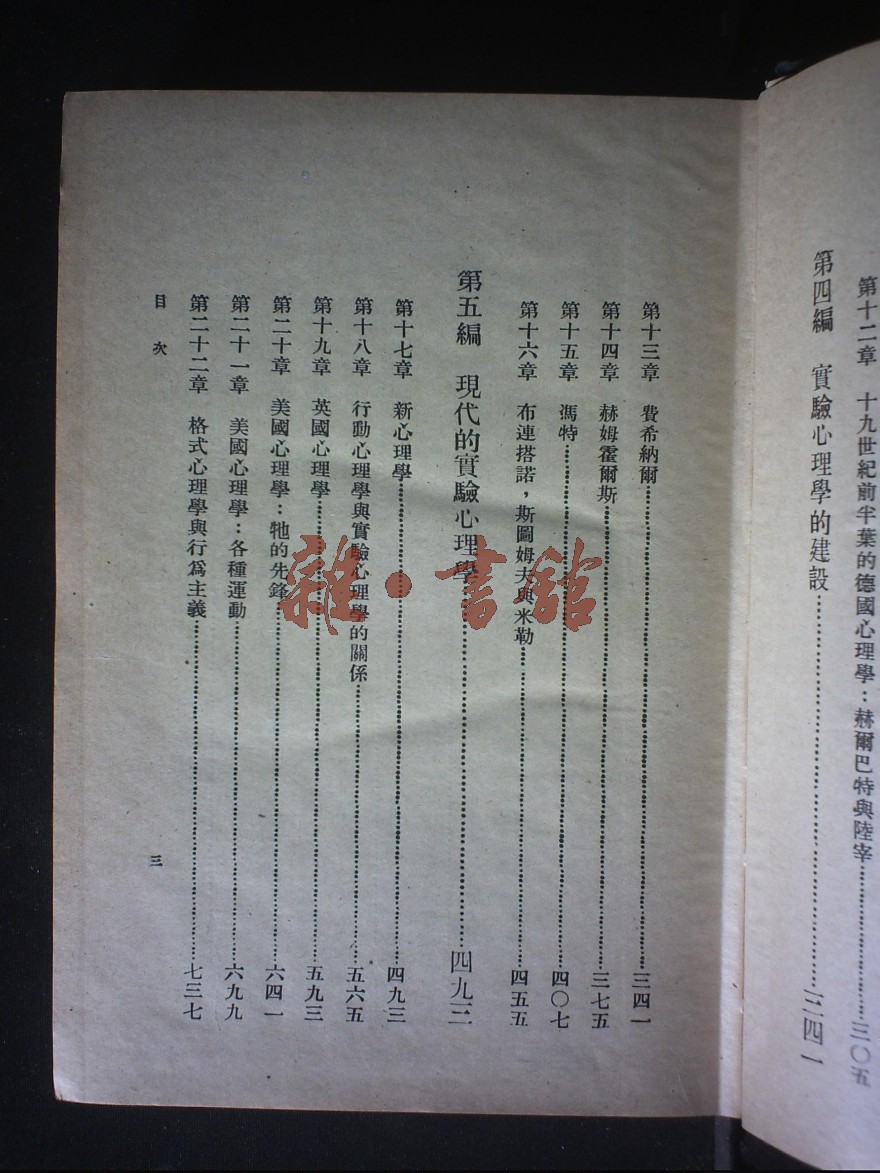 第十二章　十九世紀前半葉的德國心理學：赫爾巴特與陸宰……三〇五
第四編　實驗心理學的建設……三四一
第十三章　費希納爾……三四一
第十四章　赫姆霍爾斯……三七五
第十五章　馮特……四〇七
第十六章　布連搭諾，斯圖姆夫與米勒……四五五
第五編　現代的實驗心理學……四九三
第十七章　新心理學……四九三
第十八章　行動心理學與實驗心理學的關係……五六五
第十九章　英國心理學……五九三
第二十章　美國心理學：牠的先鋒……六四一
第二十一章　美國心理學：各種運動……六九九
第二十二章　格式心理學與行爲主義……七三七
目次　三
雜·書館